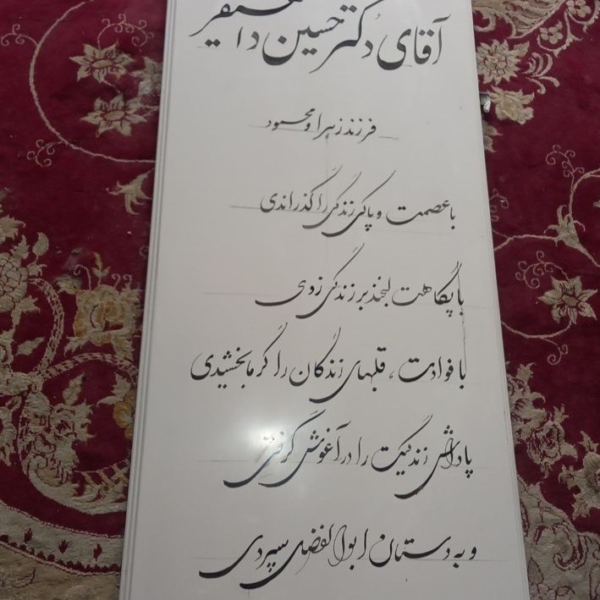 آقای دکتر حسین
فرزند زهرا و محمود
با عصمت و پاکی زندگی را گذراندی
با نگاهت لبخند بر زندگی زدی
با فوادت ، قلبهای زندگان را گرما بخشیدی
پاداش زندگیت را در آغوش گرفتی
و به دستان ابوالفضل سپردی